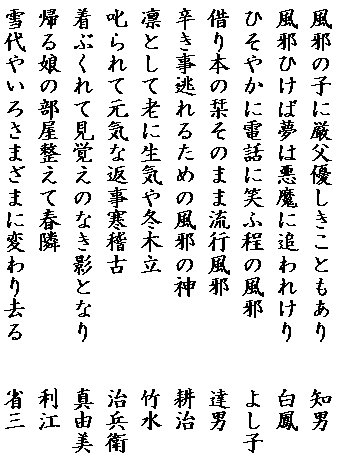 風邪の子に厳父優しきこともあり 知男
風邪ひけば夢は悪魔に追われけり 白鳳
ひそやかに電話に笑ふ程の風邪 よし子
借り本の栞そのまま流行風邪 達男
辛き事逃れるための風邪の神 耕治
凛として老に生気や冬木立 竹水
叱られて元気な返事寒稽古 治兵衛
着ぶくれて見覚えのなき影となり 真由美
帰る娘の部屋整えて春隣 利江
雪代やいろさまざまに変わり去る 省三